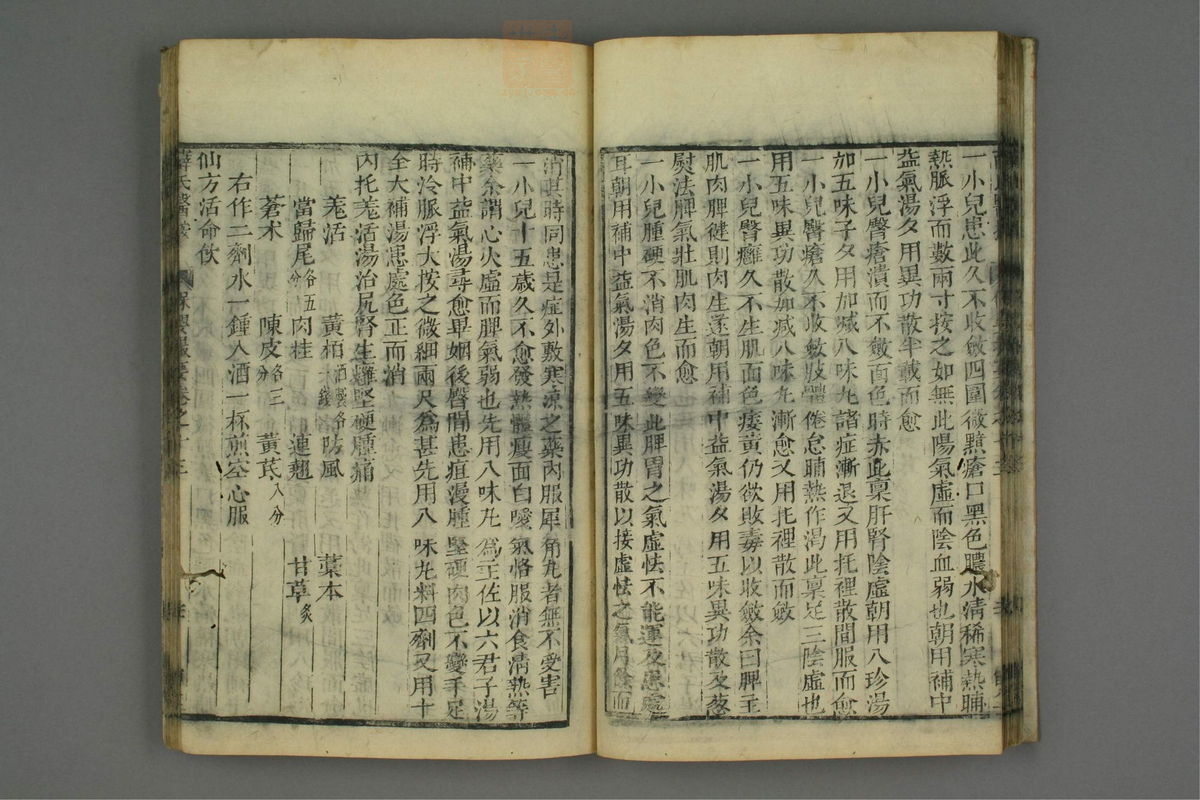 一小兒患此久不收斂四圍微黯瘡口黑色膿水清稀寒熱晡
熱脈浮而數兩寸按之如無此陽氣虛而陰血弱也朝用補中
益氣湯夕用異功散半載而愈
一小兒臀瘡潰而不斂面色時赤此稟肝腎陰虛朝用八珍湯
加五味子夕用加減八味丸諸症漸退又用托裡散間服而愈
一小兒臀瘡久不收斂肢體倦怠晡熱作渴此稟足三陰虛也
用五味異功散加減八味丸漸愈又用托裡散而斂
一小兒臀癰久不生肌面色痿黃仍欲敗毒以收斂余曰脾主
肌肉脾健則肉生遂朝用補中益氣湯夕用五味異功散及葱
熨法脾氣壯肌肉生而愈
一小兒腫硬不消肉色不變此脾胃之氣虛怯不能運及患處
耳朝用補中益氣湯夕用五味異功散以接虛怯之氣月餘而
消其時同患是症外敷寒涼之藥內服犀角丸者無不受害
一小兒十五歲久不愈發熱體瘦面白噯氣恪服消食清熱等
藥余謂心火虛而脾氣弱也先用八味丸為主佐以六君子湯
補中益氣湯尋愈畢姻後臀間患疽漫腫堅硬肉色不變手足
時冷脈浮大按之微細兩尺為甚先用八味丸料四劑又用十
全大補湯患處色正而消
內托羌活湯治尻臀生癰堅硬腫痛
羌活 黃柏酒製各二錢 防風 藁本
當歸尾各五分 肉桂 連翹 甘草炙
蒼朮 陳皮各三分 黃芪八分
右作二劑水一鍾入酒一杯煎空心服
仙方活命飲
薛氏醫案 保嬰撮要卷之十三